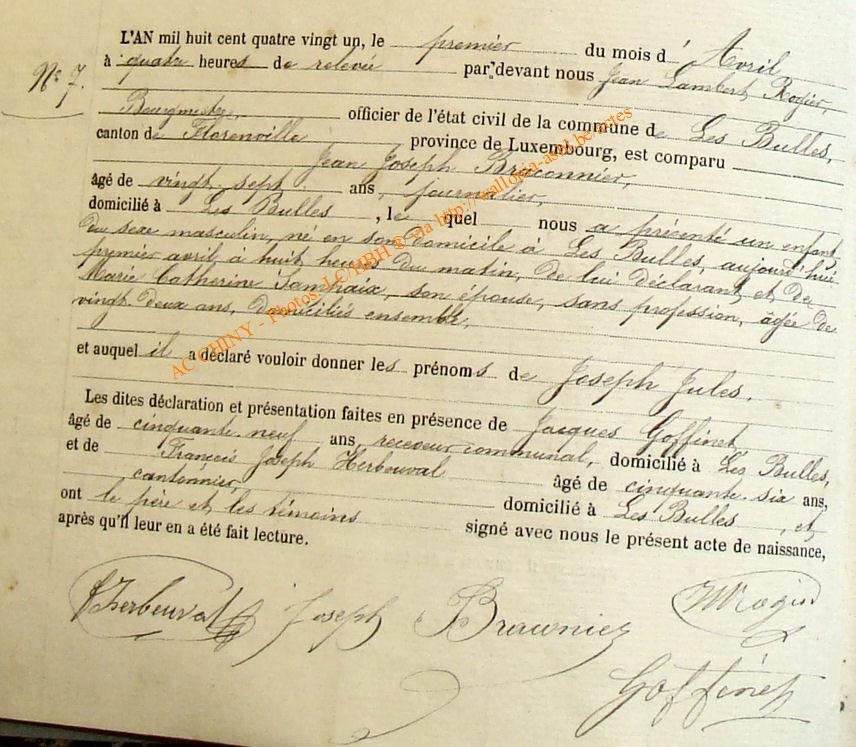 N° 7.
L'AN mil huit cent quatre vingt un, le premier du mois d' Avril
à quatre heures de relevée par devant nous Jean Lambert Rogier,
Bourgmestre, officier de l'état civil de la commune de Les Bulles,
canton de Florenville province de Luxembourg, est comparu
Jean Joseph Braconnier,
âgé de vingt-sept ans, journalier,
domicilié à Les Bulles, le quel nous a présenté un enfant
du sexe masculin, né en son domicile à Les Bulles, aujourd'hui
premier avril à huit heures du matin, de lui déclarant, et de
Marie Catherine son épouse, sans profession, âgée de
vingt-deux ans, domiciliés ensemble,
et auquel il a déclaré vouloir donner les prénoms de Joseph Jules.
Les dites déclaration et présentation faites en présence de Jacques Goffinet,
âgé de cinquante-neuf ans, receveur communal, domicilié à Les Bulles,
et de François Joseph Herbeuval âgé de cinquante-six ans,
cantonnier, domicilié à Les Bulles, et
ont le père et les témoins signé avec nous le présent acte de naissance,
après qu'il leur en a été fait lecture.
Herbeuval Joseph
Goffinet
AC CHINY - Photos: LC/HBH ® via http://wallonia-asbl.be/actes